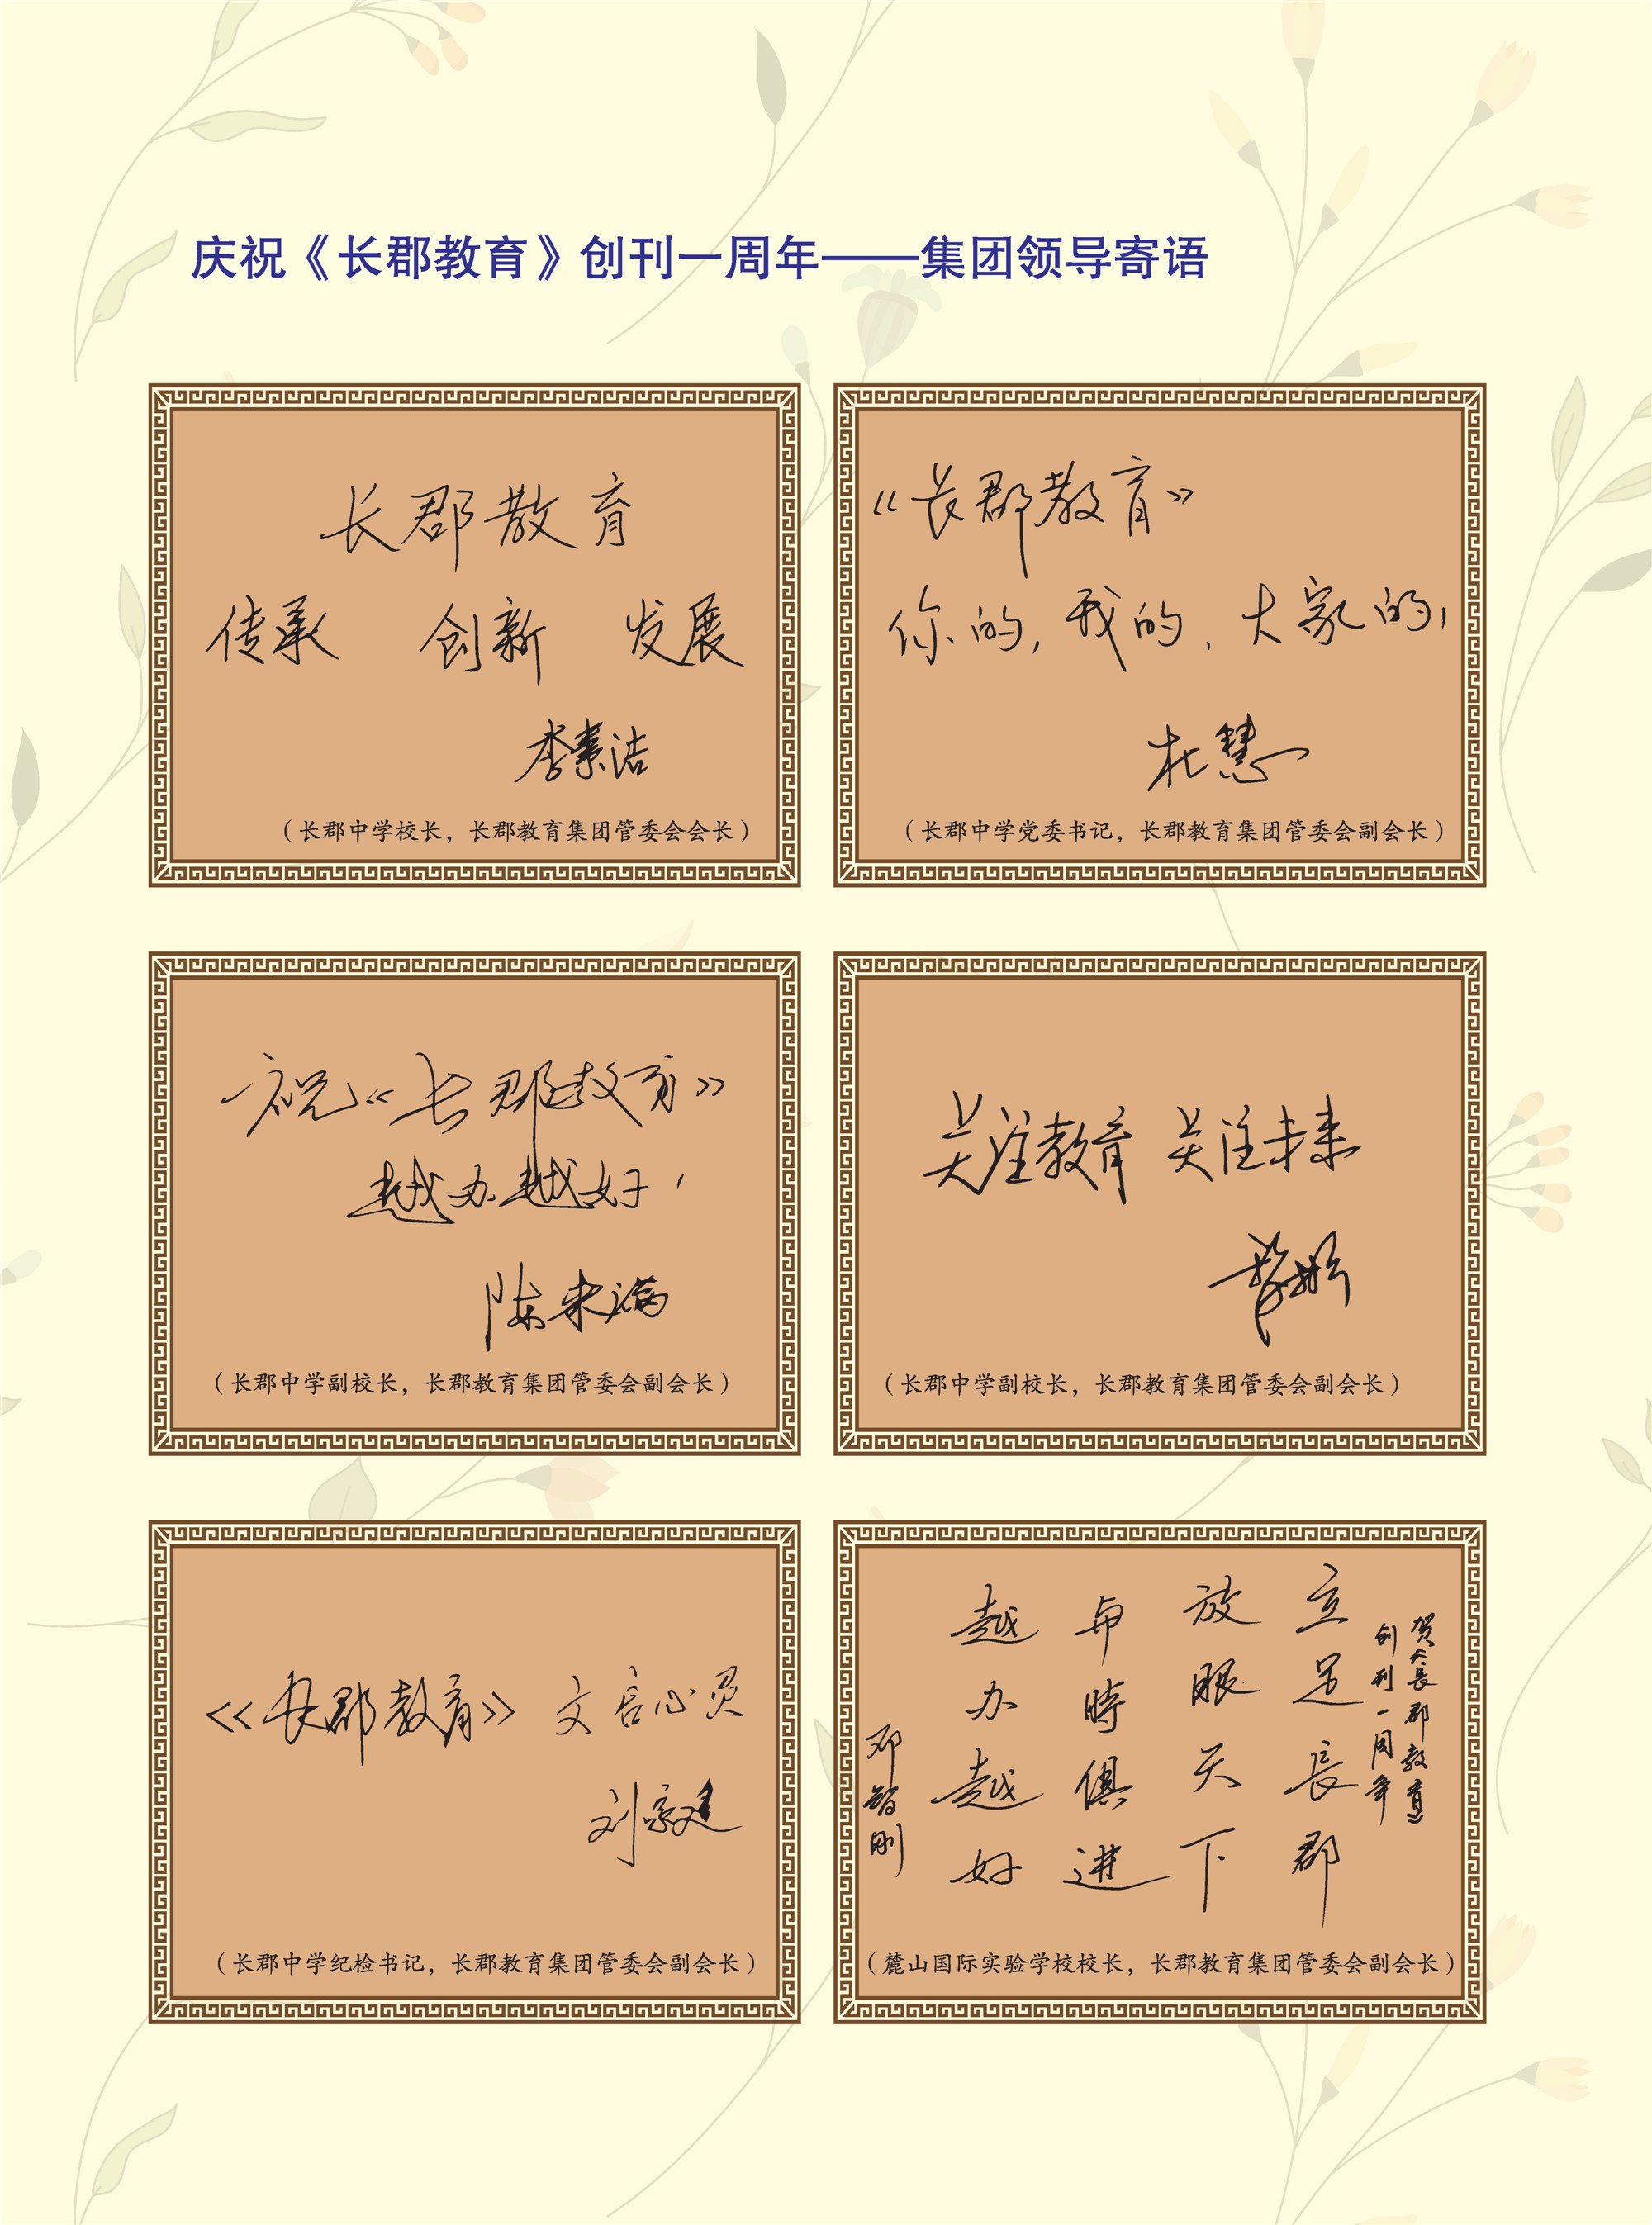 庆祝《长郡教育》创刊一周年——集团领导寄语
长郡教育
传承 创新 发展
李素洁
（长郡中学校长，长郡教育集团管委会会长）
《长郡教育》
你的，我的，大家的！
杜慧
（长郡中学党委书记，长郡教育集团管委会副会长）
祝《长郡教育》
越办越好！
陈来满
（长郡中学副校长，长郡教育集团管委会副会长）
关注教育 关注未来
（长郡中学副校长，长郡教育集团管委会副会长）
《长郡教育》
刘家建
（长郡中学纪检书记，长郡教育集团管委会副会长）
贺《長郡教育》
创刊一周年
立足長郡
放眼天下
与時俱进
越办越好
邓智刚
（麓山国际实验学校校长，长郡教育集团管委会副会长）